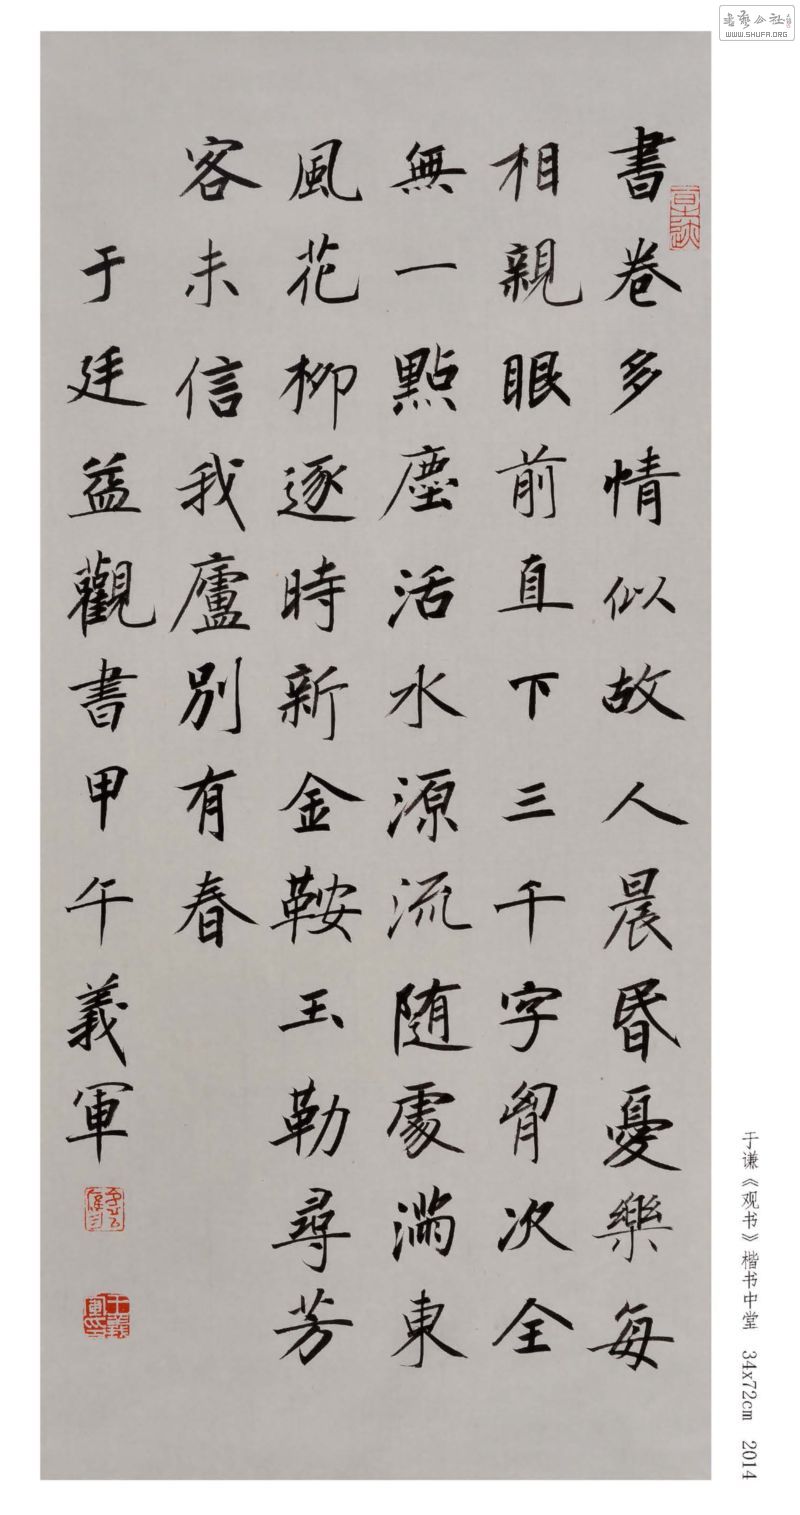 書卷多情似故人晨昬憂樂每
相親眼前直下三千字胷次全
無一點塵活水源流随處滿東
風花柳逐時新金鞍玉勒尋芳
客未信我廬別有春
于廷益觀書甲午義軍
于谦《观书》楷书中堂 34x72cm 2014
WWW.SHUFA.ORG